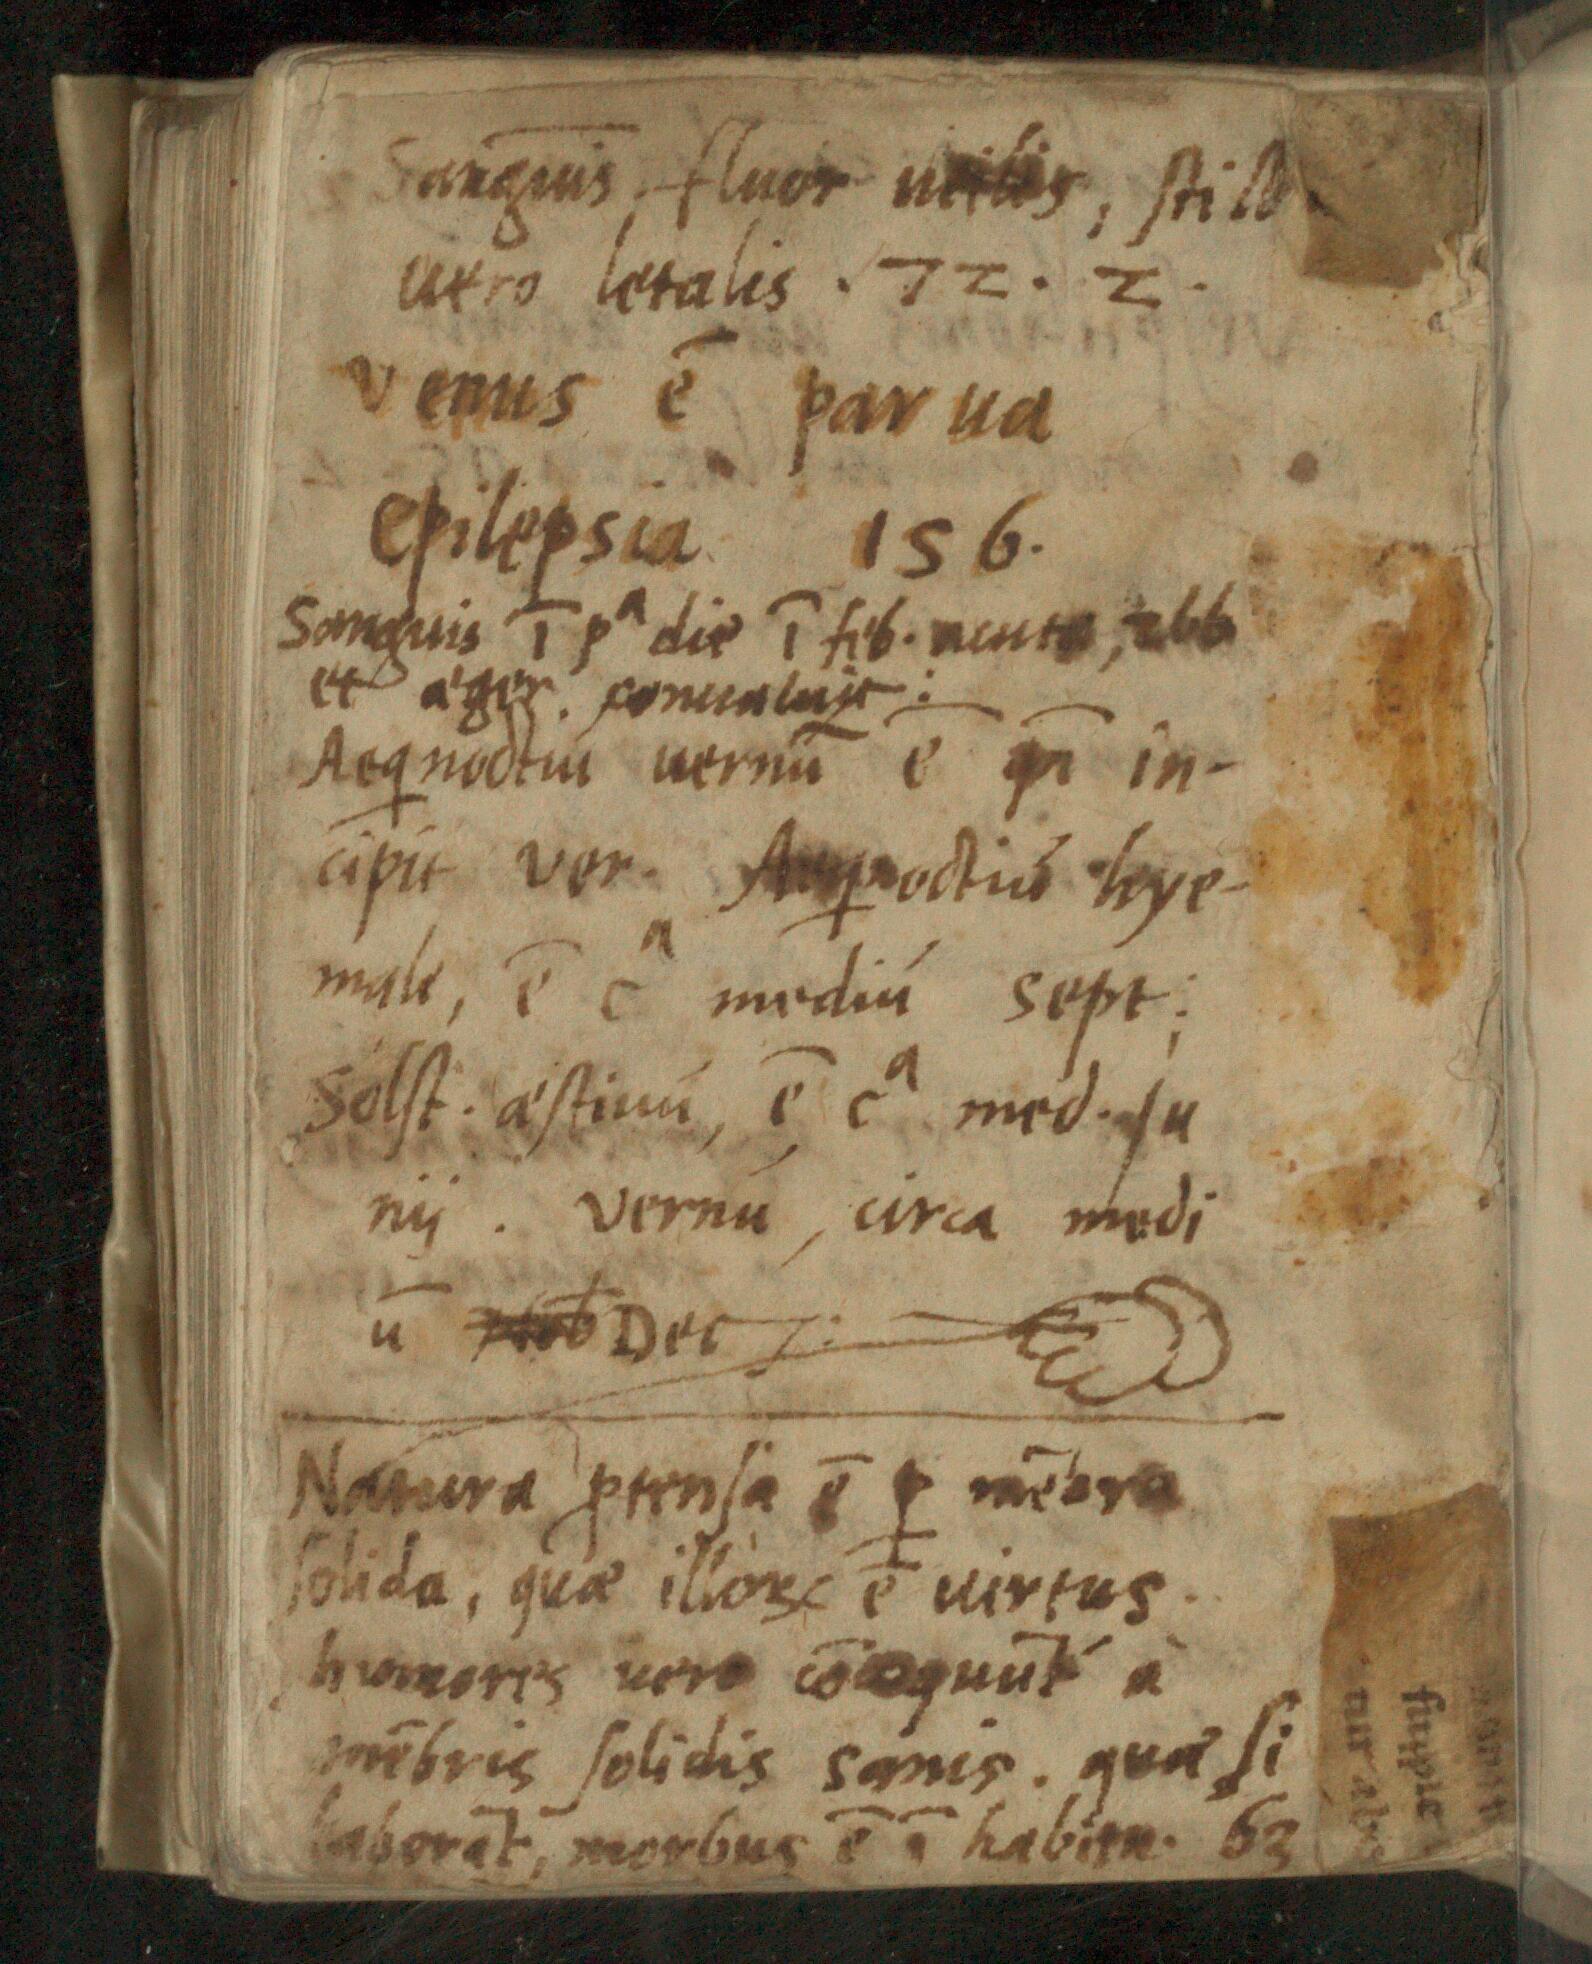 Sanguis̄ fluor utilis, still
uero letalis . 72. 2.
Venus ē parua
Epilepsia 156.
Sanguis ī pᵃ die ī feb. acuta, 266
et æger conualuit:
Aeqnoctiú uernū ē qn̄ in-
cipit ver. Aeqnoctiú hye-
male, ē cᵃ mediú sept;
Solst. æstiuú, ē cᵃ med. Iu
nij. vernú, circa medi
ū Dec:
Natura ptensa ē p mēbra
solida, quæ illorꝝ ē uirtus.
humores uero cōcoquūt́ à
mēbris solidis sanis. quæ si
laborāt, morbus ē ī habitu. 63